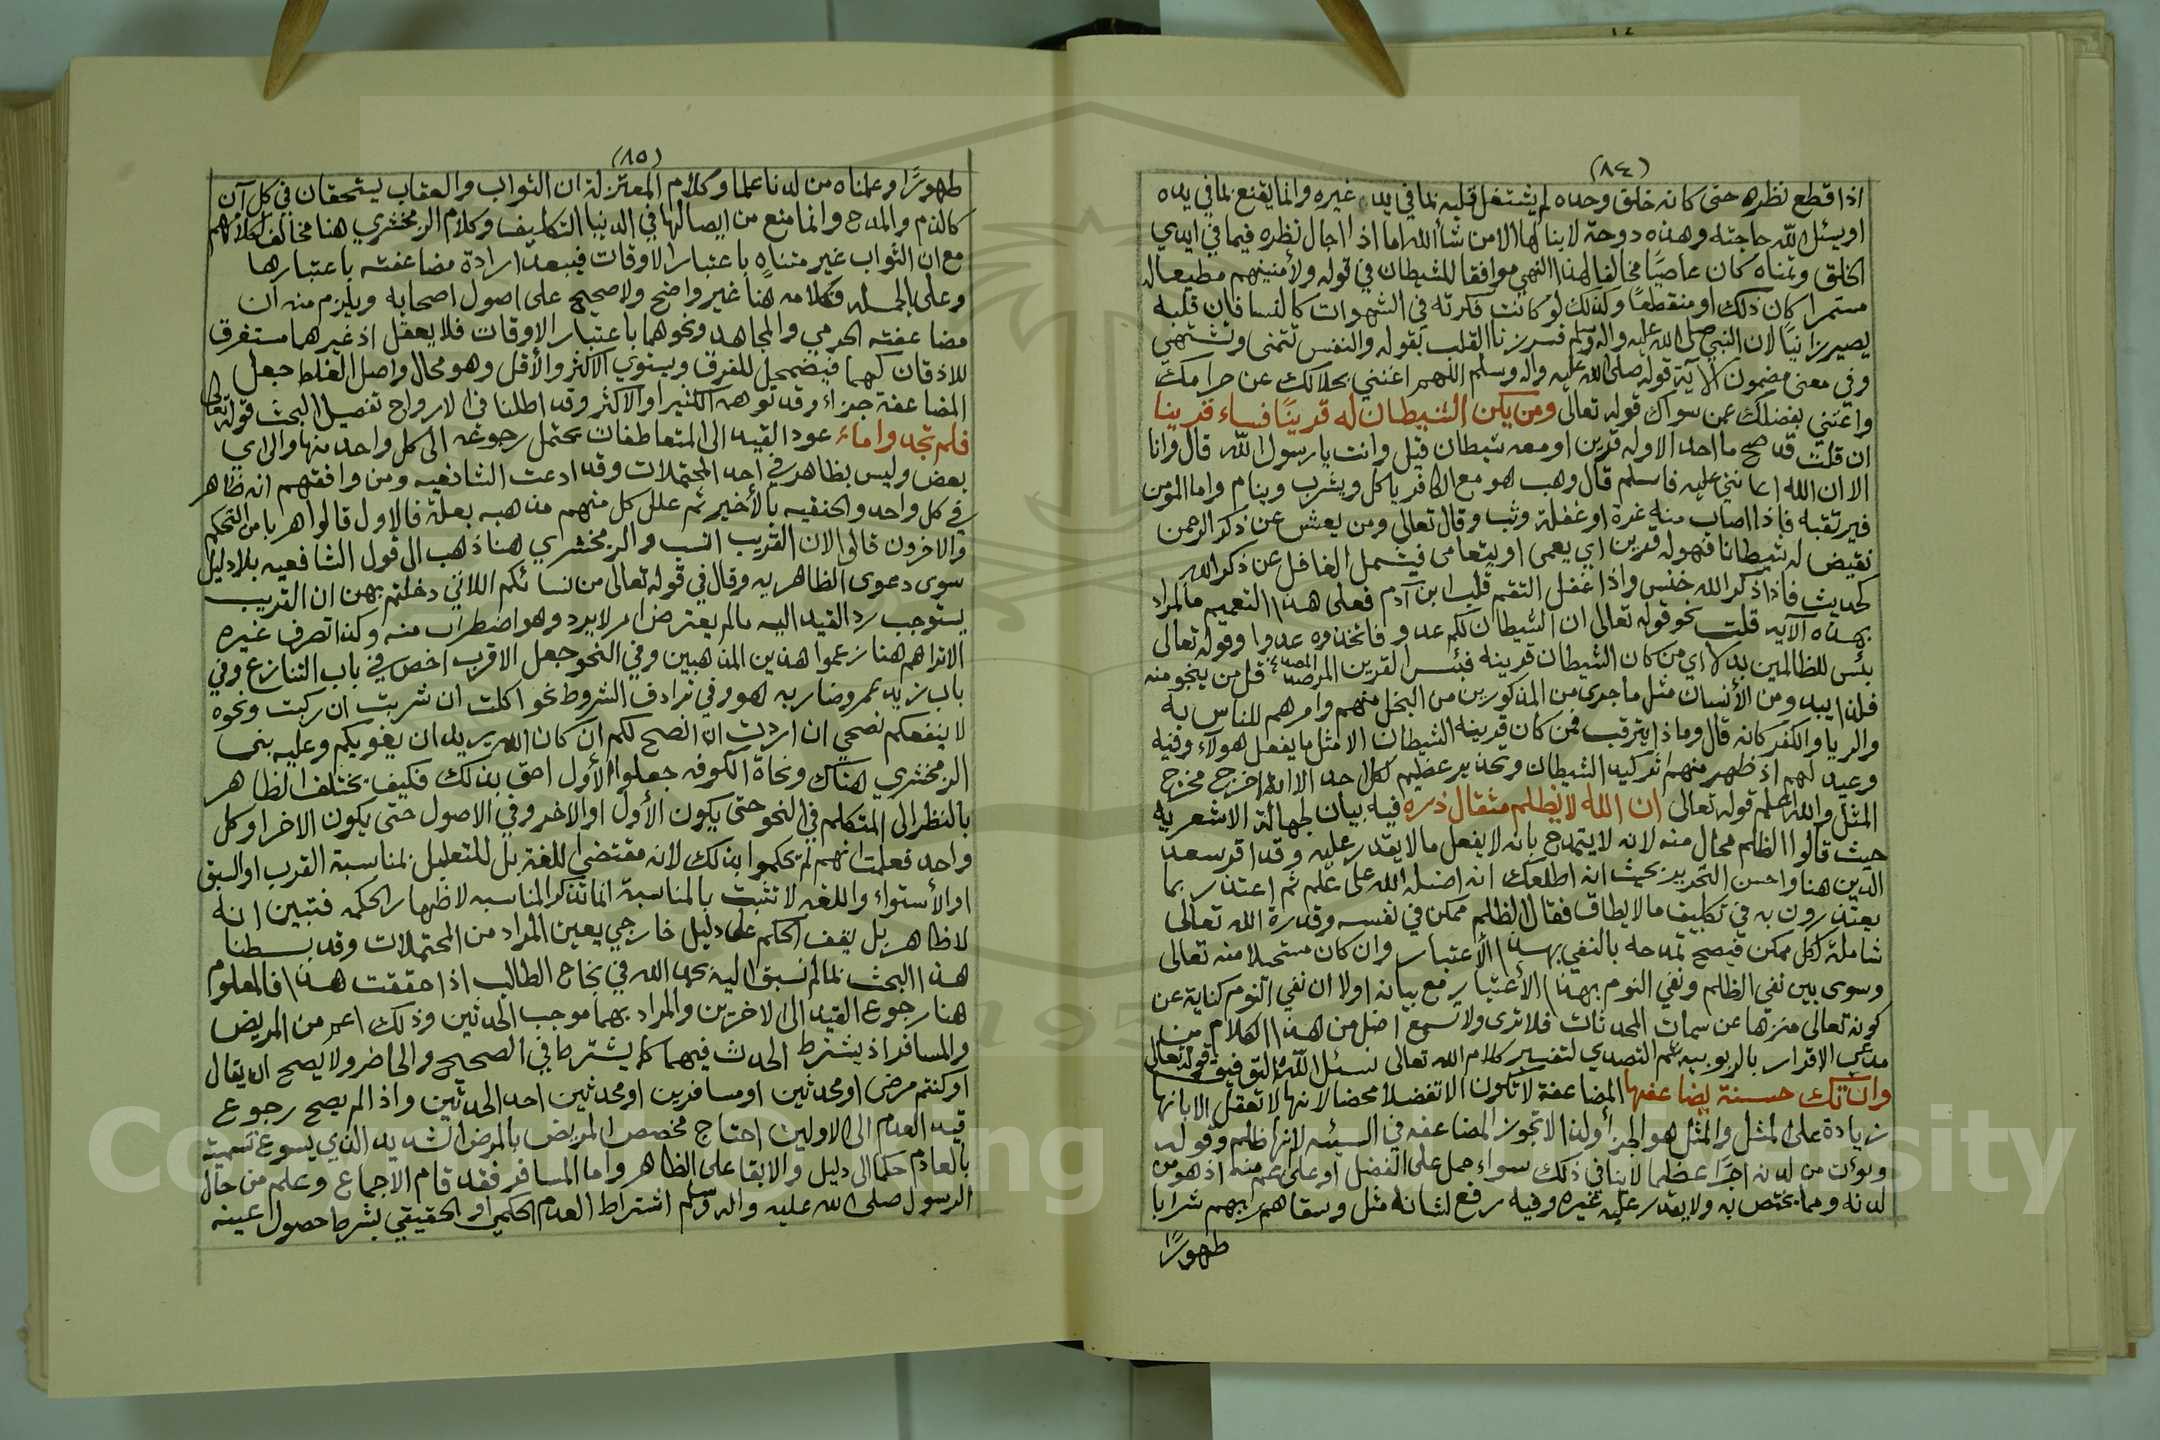 (٨٤)
اذا قطع نظره حتى كانه خلق وحده لم يشتغل قلبه بما في يد غيره وانما يقنع بما في يده
او يسئل الله حاجته وهذه دوحة لا ينالها الا من شأ الله اما اذا اجال نظره فيما في ايدي
الخلق وتمناه كان عاصيًا مخالفا لهذا النهي موافقا للشيطان في قوله ولأمنينهم مطيعا له
مستمرا كان ذلك او منقطعًا وكذلك لو كانت فكرته في الشهوات كالنسا فان قلبه
يصير زانيًا لان النبي صلى الله عليه واله وسلم فسر زنا القلب بقوله والنفس تتمنى وتشتهي
وفي معنى مضمون الآية قوله صلى الله عليه واله وسلم اللهم اغنني بحلالك عن حرامك
واغنني بفضلك عمن سواك قوله تعالى ومن يكن الشيطان له قرينًا فساء قرينا
ان قلت قد صح ما احد الا وله قرين او معه شيطان قيل وانت يا رسول الله قال وانا
الا ان الله اعانني عليه فاسلم قال وهب هو مع الكافر ياكل ويشرب وينام واما المؤمن
فيرتقبه فاذا اصاب منه غرة او غفلة وثب وقال تعالى ومن يعش عن ذكر الرحمن
نقيض له شيطانا فهو له قرين اي يعمى او يتعامى فيشمل الغافل عن ذكر الله
كحديث فاذا ذكر الله خنس واذا غفل التقم قلب ابن آدم فعلى هذا التعميم ما المراد
بهذه الآيه قلت نحو قوله تعالى ان الشيطان لكم عدو فاتخذوه عدوا وقوله تعالى
بئس للظالمين بدلا اي من كان الشيطان قرينه فبئس القرين المرصد له قل من ينجو منه
فلذا يبد ومن الأنسان مثل ما جرى من المذكورين من البخل منهم وامرهم للناس به
والريا والكفر كانه قال وماذا يترقب ممن كان قرينه الشيطان الا مثل ما يفعل هولآء وفيه
وعيد لهم اذ ظهر منهم اثر كيد الشيطان وتحذير عظيم لكل احد الا انه اخرج مخرج
المثل والله اعلم قوله تعالى ان الله لا يظلم مثقال ذره فيه بيان لجهالة الاشعريه
حيث قالوا الظلم محال منه لانه لا يتمدح بانه لا يفعل ما لا يقدر عليه وقد اقر سعد
الدين هنا واحسن التحرير بحيث انه اطلعك انه اضله الله على علم ثم اعتذر بما
يعتذرون به في تكليف ما لا يطاق فقال الظلم ممكن في نفسه وقدرة الله تعالى
شاملة لكل ممكن فيصح تمدحه بالنفي بهذا الأعتبار وان كان مستحيلا منه تعالى
وسوى بين نفي الظلم ونفي النوم بهذا الأعتبار مع بيانه اولا ان نفي النوم كناية عن
كونه تعالى منزها عن سمات المحدثات فلا ترى ولا تسمع اضل من هذا الكلام من
مدعي الاقرار بالربوبيه ثم التصدي لتفسير كلام الله تعالى نسئل الله التوفيق قوله تعالى
وان تك حسنة يضاعفها المضاعفة لا تكون الا تفضلا محضا لانها لا تعقل الا بانها
زيادة على المثل والمثل هو الجزأ ولذا لا تجوز المضاعفه في السيئه لانها ظلم وقوله
ويؤت من لدنه اجرًا عظيما لا ينافي ذلك سواء حمل على الفضل او على اعم منه اذ هو من
لدنه ومما يختص به ولا يقدر عليه غيره وفيه رفع لشانه مثل وسقاهم ربهم شرابا
طهورًا
(٨٥)
طهورًا وعلمناه من لدنا علما وكلام المعتزلة ان الثواب والعقاب يستحقان في كل آن
كالذم والمدح وانما منع من ايصالها في الدنيا التكاليف وكلام الزمخشري هنا مخالف لكلامهم
مع ان الثواب غير متناهٍ باعتبار الاوقات فيبعد ارادة مضاعفته باعتبارها
وعلى الجمله فكلامه هنا غير واضح ولا صحيح على اصول اصحابه ويلزم منه ان
مضاعفته الحرمي والمجاهد ونحوهما باعتبار الاوقات فلا يعقل اذ غيرهما مستغرق
للاوقات كهما فيضمحل الفرق ويستوي الاكثر والأقل وهو محال واصل الغلط جعل
المضاعفة جزاء وقد توهمه الكثير او الاكثر وقد اطلنا في الارواح تفصيل البحث قوله تعالى
فلم تجدوا ماء عود القيد الى المتعاطفات يحتمل رجوعه الى كل واحد منها والى اي
بعض وليس بظاهر في احد المحتملات وقد ادعت الشافعيه ومن وافقهم انه ظاهر
في كل واحد والحنفيه بالأخير ثم علل كل منهم مذهبه بعلة فالاول قالوا هربا من التحكم
والاخرون قالوا لان القريب انسب والزمخشري هنا ذهب الى قول الشافعيه بلا دليل
سوى دعوى الظاهريه وقال في قوله تعالى من نسائكم اللاتي دخلتم بهن ان القريب
يستوجب رد القيد اليه مالم يعترض امر لا يرد وهو اضطراب منه وكذا تصرف غيره
الا تراهم هنا زعموا هذين المذهبين وفي النحو جعل الاقرب اخص في باب التنازع وفي
باب زيد عمرو ضاربه هو وفي ترادف الشروط نحو اكلت ان شربت ان ركبت ونحوه
لا ينفعكم نصحي ان اردت ان انصح لكم ان كان الله يريد ان يغويكم وعليه بنى
الزمخشري هناك ونحاة الكوفه جعلوا الأول احق بذلك فكيف يختلف الظاهر
بالنظر الى المتكلم في النحو حتى يكون الأول او الاخر وفي الاصول حتى يكون الاخر او كل
واحد فعلمت انهم لم يحكموا بذلك لانه مقتضى اللغة بل للتعليل بمناسبة القرب او السبق
او الأستواء واللغه لا تثبت بالمناسبة انما تذكر المناسبه لاظهار الحكمه فتبين انه
لا ظاهر بل يقف الحكم على دليل خارجي يعين المراد من المحتملات وقد بسطنا
هذا البحث بمالم نسبق اليه بحمد الله في نجاح الطالب اذا حققت هذا فالمعلوم
هنا رجوع القيد الى الاخرين والمراد بهما موجب الحدثين وذلك اعم من المريض
والمسافر اذ يشترط الحدث فيهما كما يشترط في الصحيح والحاضر ولا يصح ان يقال
او كنتم مرضى او محدثين او مسافرين او محدثين احد الحدثين واذا لم يصح رجوع
قيد العدم الى الاولين احتاج مخصص المريض بالمرض الشديد الذي يسوغ تسميته
بالعادم حكما الى دليل والا بقا على الظاهر واما المسافر فقد قام الاجماع وعلم من حال
الرسول صلى الله عليه واله وسلم اشتراط العدم الحكمي او الحقيقي بشرط حصول عينه